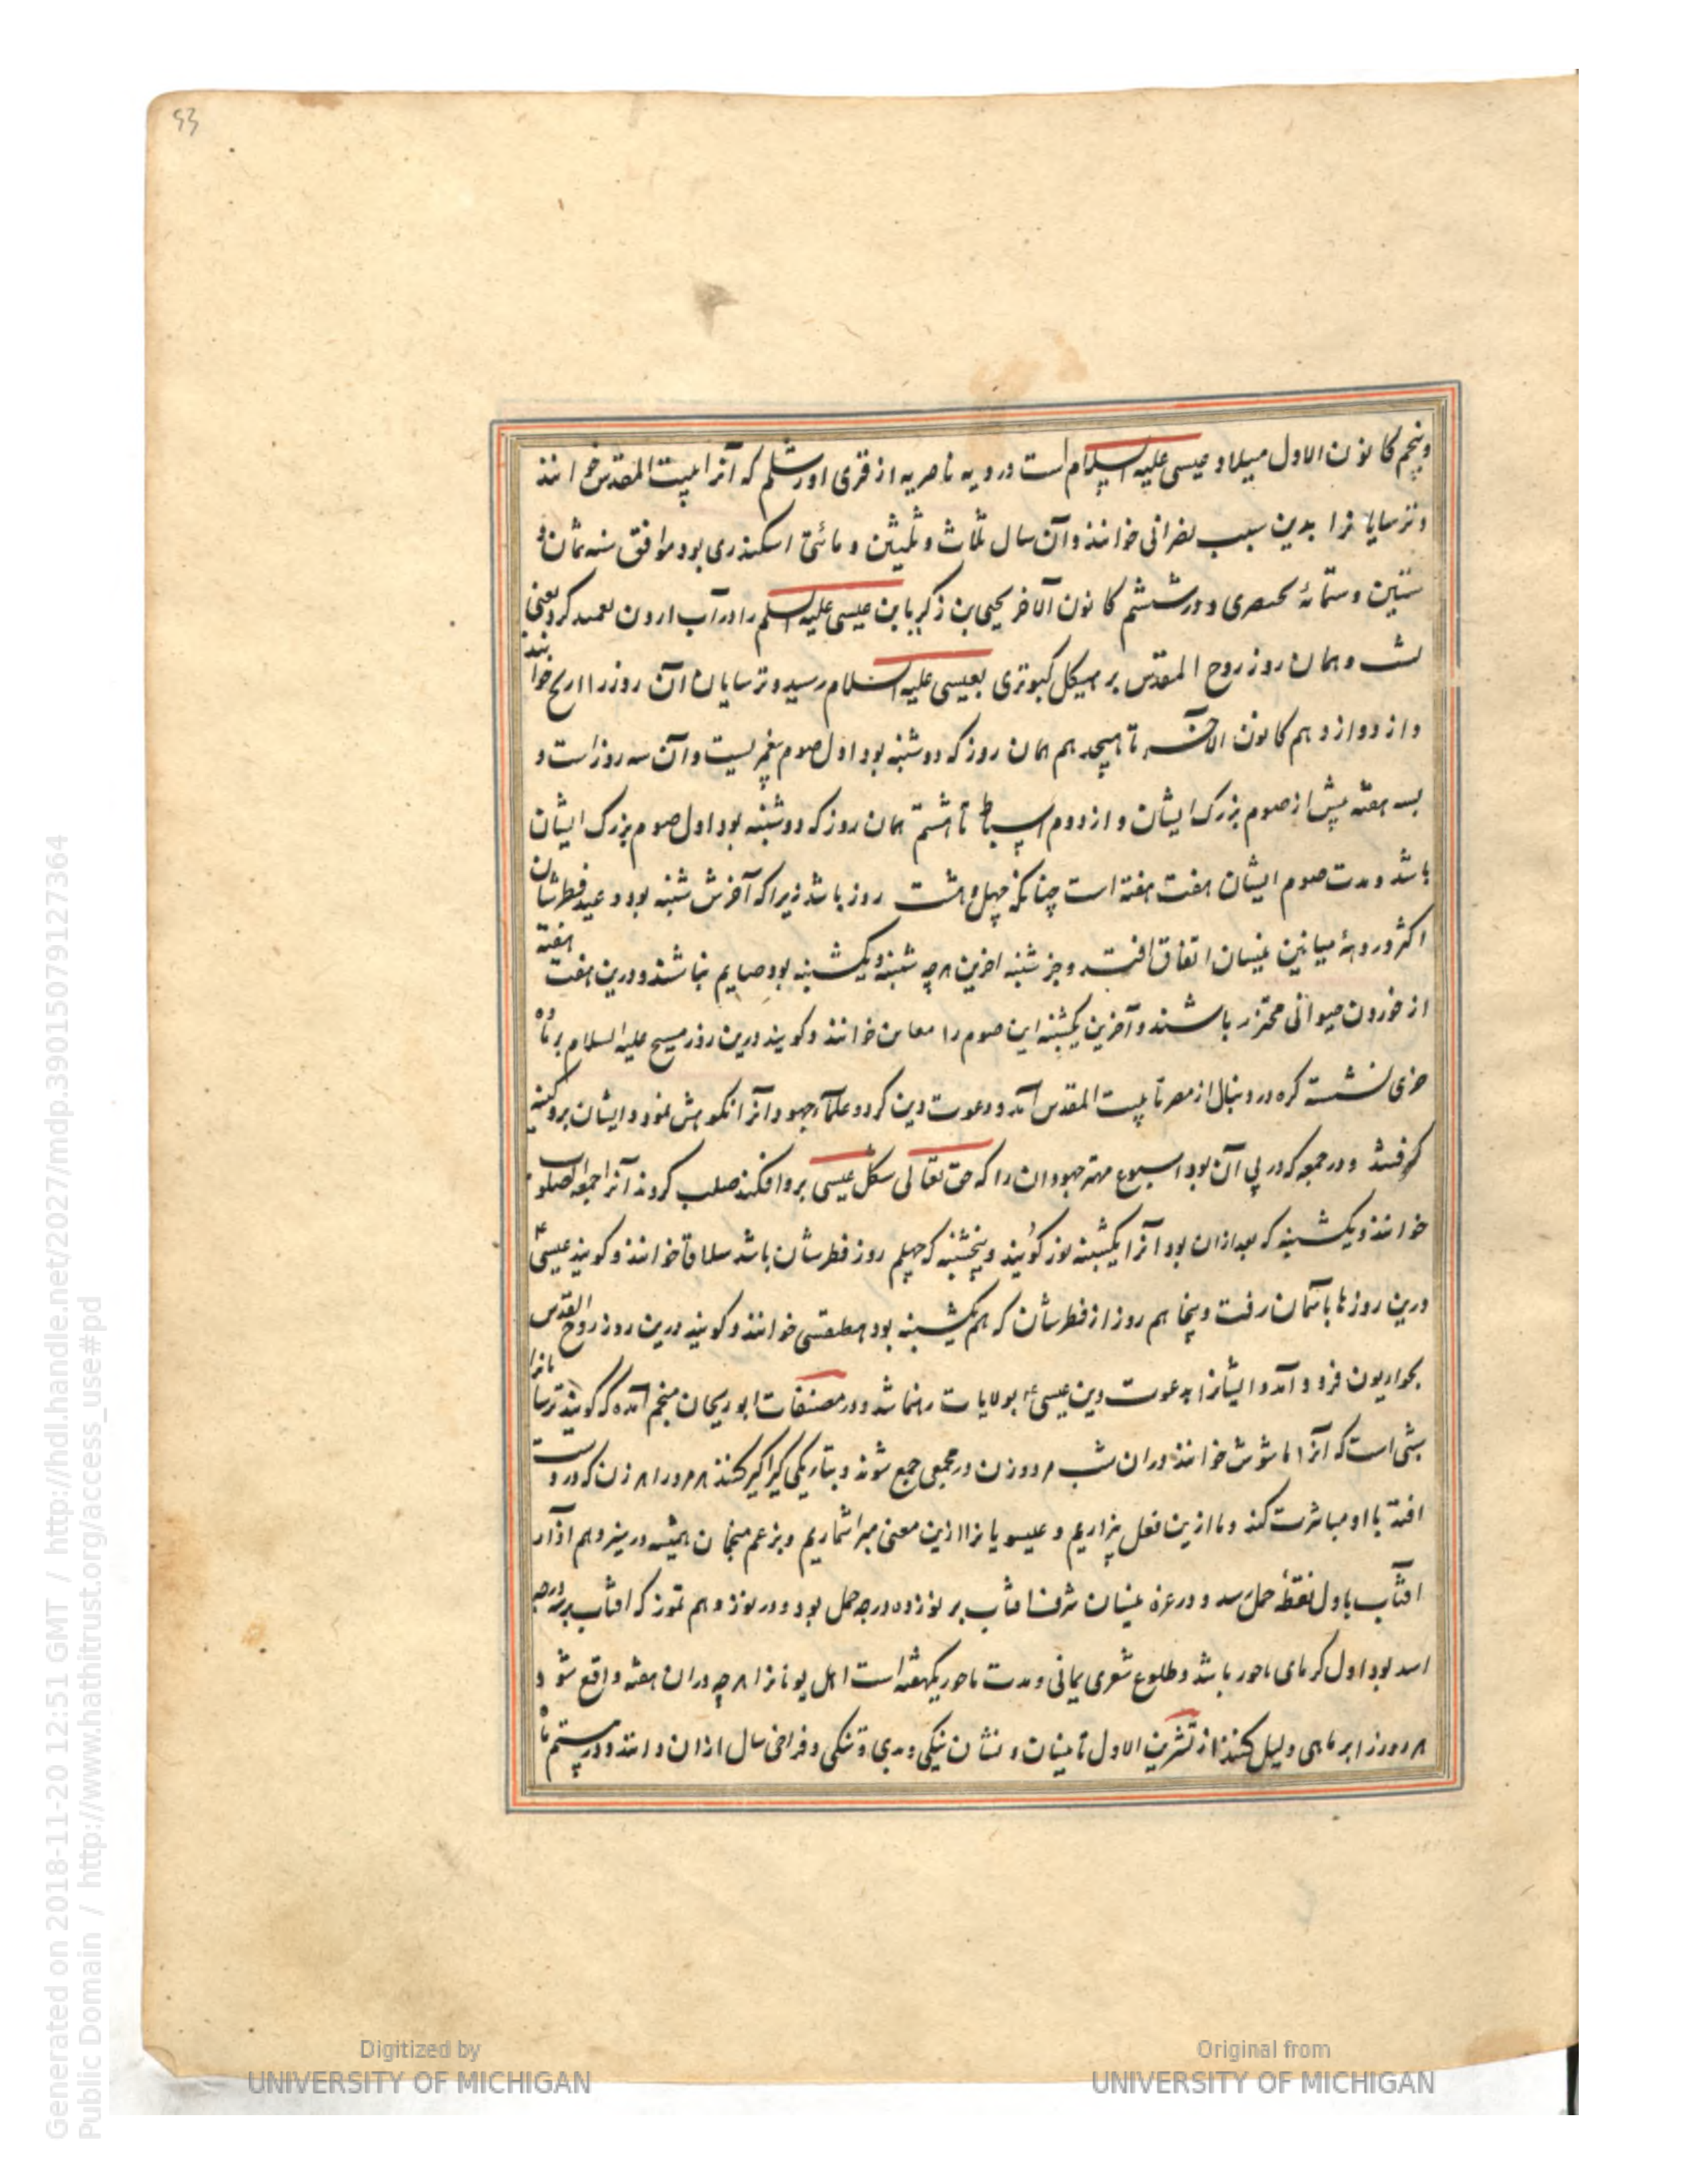 53
وپنجم کانون الاول میلاد عیسی علیه السلام است در دیه ناصریه از قری اورشلم که آنرا بیت المقدس خوانند
وترسایانرا بدین سبب نصرانی خوانند وآن سال ثلاث وثلثین ومائتی اسکندری بود موافق سنه ثمان و
ستین وستمائهٔ بختصری ودر ششم کانون الآخر یحیی بن زکریا بن عیسی علیه السلم را در آب اردن تعمید کرد یعنی
بشست وهمان روز روح المقدس بر هیکل کبوتری بعیسی علیه السلام رسید وترسایان آن روز را خوانند
واز دوازدهم کانون الآخر تا هیجدهم همان روز که دوشنبه بود اول صوم است وآن سه روز است و
بسه هفته پیش از صوم بزرک ایشان واز دوم اسباط تا هشتم همان روز که دوشنبه بود اول صوم بزرک ایشان
باشد ومدت صوم ایشان هفت هفته است چنانکه چهل وهشت روز باشد زیرا که آخرش شنبه بود وعید فطرشان
اکثر در دههٔ میانین نیسان اتفاق افتد وجز شنبه اخرین هرچه شنبه ویکشنبه بود صایم نباشند ودرین هفت هفته
از خوردن حیوانی محترز باشند وآخرین یکشنبه این صوم را خوانند وکویند درین روز مسیح علیه السلام بر ماده
خری نشسته کره در دنبال از مصر تا بیت المقدس آمد ودعوت دین کرد وعلمآء جهود انرا نکوهش نمود وایشان برو کینه
کرفتند ودر جمعه که در پی آن بود اسیوع مهتر جهودان را که حق تعالی شکل عیسی برو افکند صلب کردند آنرا جمعه الصلوب
خوانند ویکشنبه که بعد ازان بود آنرا یکشنبه نو کویند وپنجشنبه که چهلم روز فطرشان باشد سلاقا خوانند وکویند عیسی ع
درین روزها بآسمان رفت وپنجاهم روز از فطرشان که هم یکشنبه بود خوانند وکویند درین روز روح القدس
بحواریون فرود آمد وایشانرا بدعوت دین عیسی ع بولایات رهنما شد ودر مصنفات ابوریحان منجم آمده که کویند ترسایانرا
شبی است که آنرا ماشوش خوانند دران شب مرد وزن در مجمعی جمع شوند وبتاریکی کیراکیر کنند هر مرد را هر زن که در دست
افتد با او مباشرت کند وما ازین فعل بیزاریم وعیسویانرا ازین معنی مبرا شماریم وبزعم منجمان همیشه در سیزدهم اذار
افتاب باول نقطهٔ حمل رسد ودر غره نیسان شرف افتاب بر نوزده درجه حمل بود ودر نوزدهم تموز که افتاب درجه
اسد بود اول کرمای باحور باشد وطلوع شعری یمانی ومدت باحور یکهفته است اهل یونانرا هرچه دران هفته واقع شود
هر روز را بر ماهی دلیل کنند از تشرین الاول تا نیسان ونشان نیکی وبدی وتنکی وفراخی سال ازان دانند ودر بیستم
Generated on 2018-11-20 12:51 GMT / http://hdl.handle.net/2027/mdp.39015079127364
Public Domain / http://www.hathitrust.org/access_use#pd
Digitized by
UNIVERSITY OF MICHIGAN
Original from
UNIVERSITY OF MICHIGAN